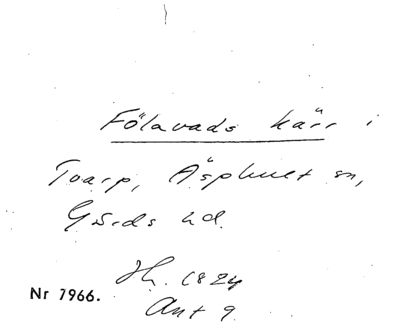 Fölavads kärr i
Toarp, Äsphult sn,
Gärds hd.
Jh. 1824
Ant 9
Nr 7966.